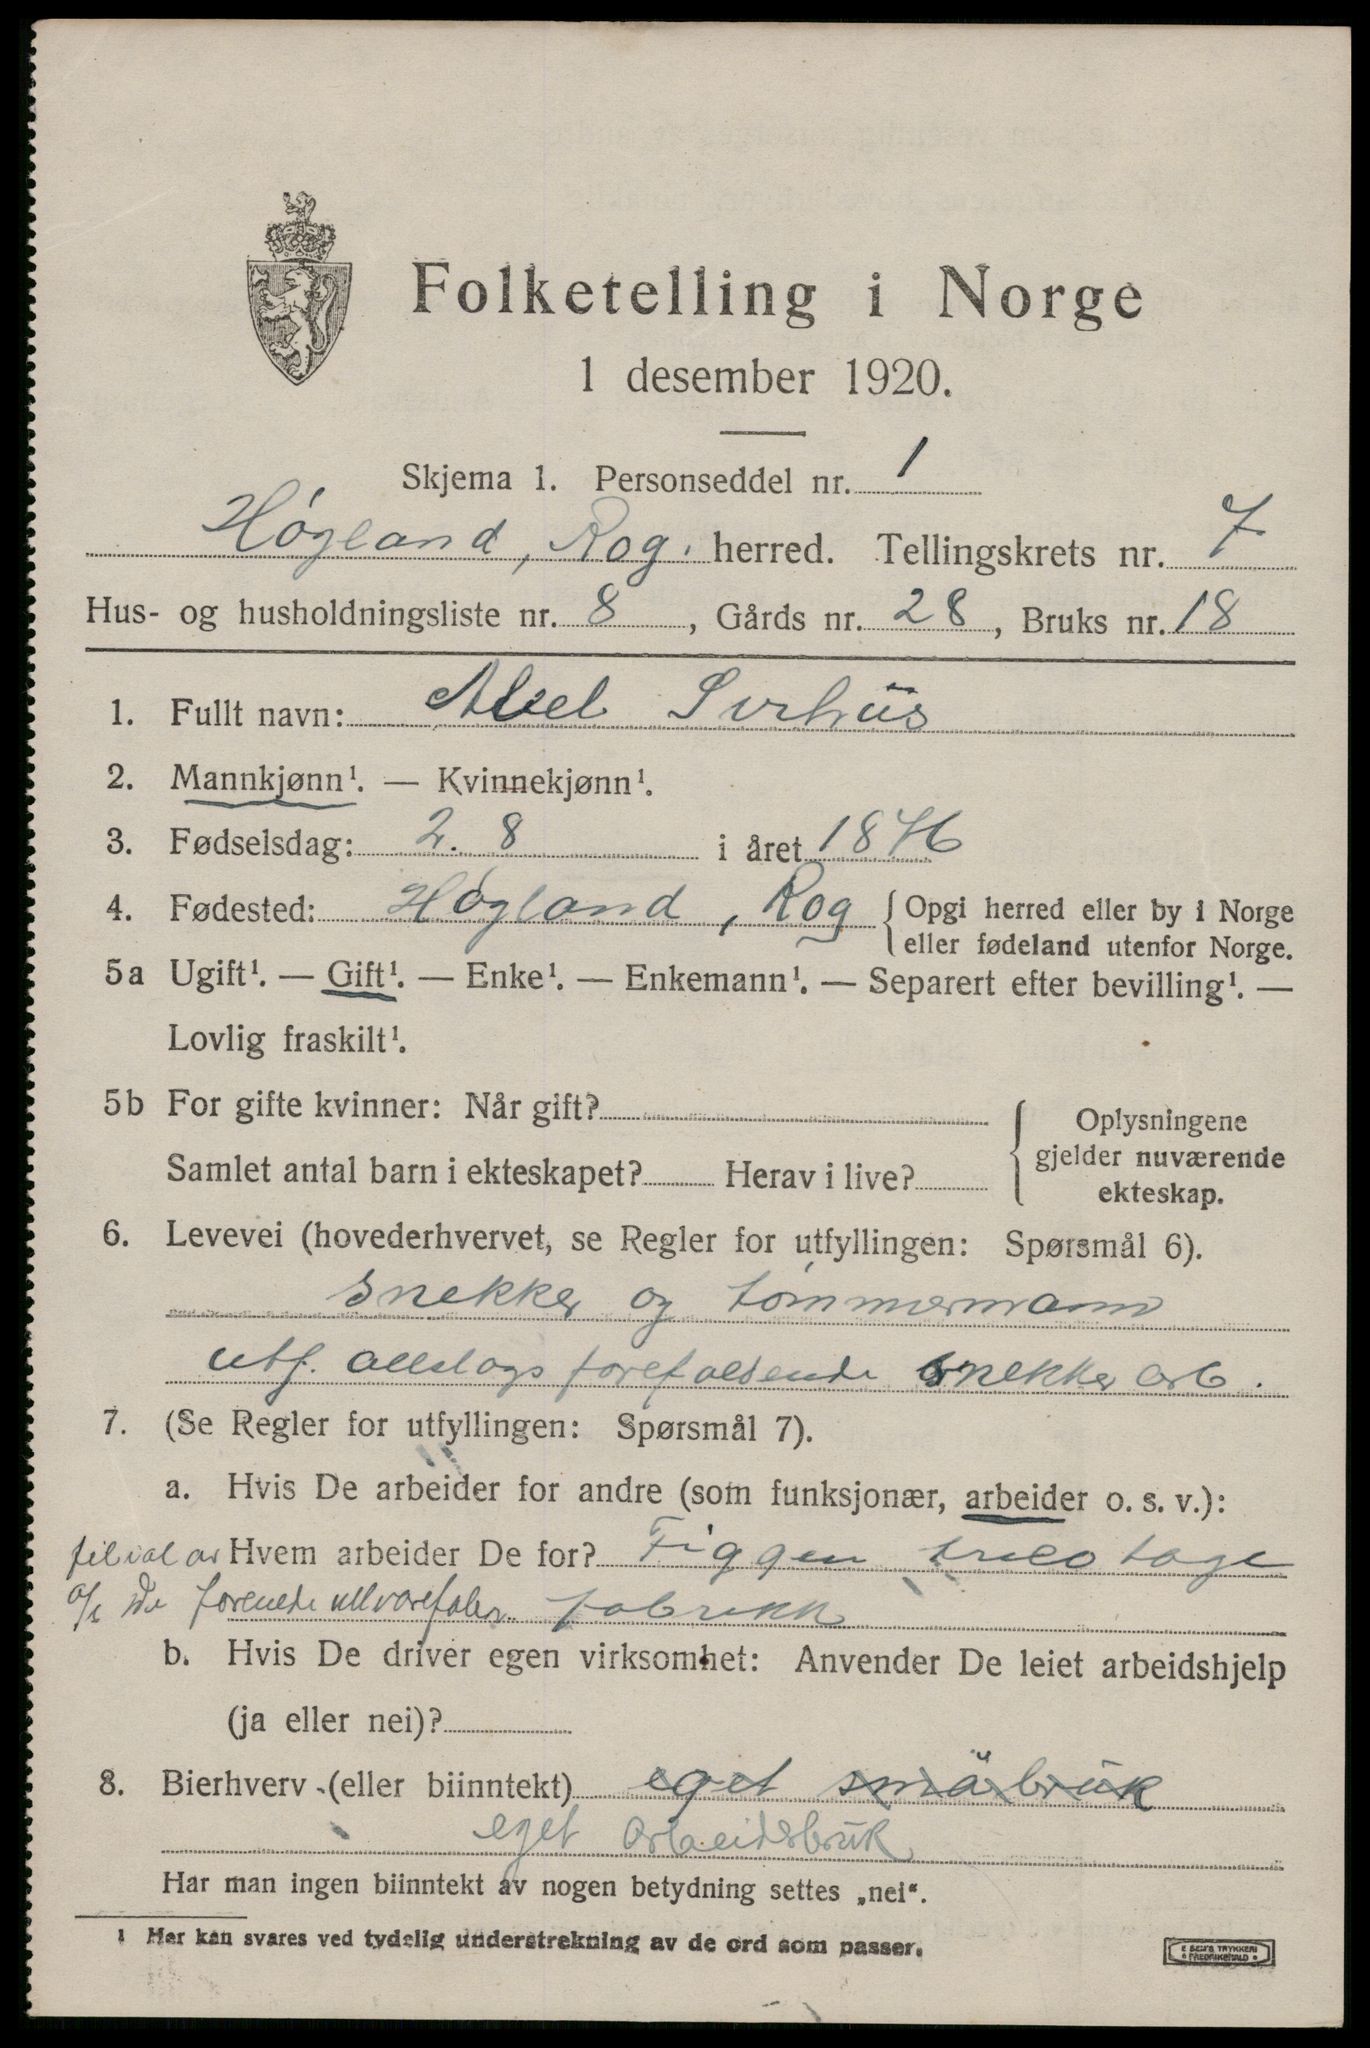 Folketelling i Norge
1 desember 1920.
Skjema 1. Personseddel nr. 1
Høgland, Rog. herred. Tellingskrets nr. 7
Hus- og husholdningsliste nr. 8, Gårds nr. 28, Bruks nr. 18
1. Fullt navn: Abel Svihus
2. Mannkjønn¹. — Kvinnekjønn¹.
3. Fødselsdag: 2. 8 i året 1876
4. Fødested: Høgland, Rog { Opgi herred eller by i Norge
eller fødeland utenfor Norge.
5a Ugift¹. — Gift¹. — Enke¹. — Enkemann¹. — Separert efter bevilling¹. —
Lovlig fraskilt¹.
5b For gifte kvinner: Når gift?
Samlet antal barn i ekteskapet? Herav i live?
Oplysningene
gjelder nuværende
ekteskap.
6. Levevei (hovederhvervet, se Regler for utfyllingen: Spørsmål 6).
Snekker og tømmermann
utf. allslags forefaldende snekker arb.
7. (Se Regler for utfyllingen: Spørsmål 7).
a. Hvis De arbeider for andre (som funksjonær, arbeider o. s. v.):
filial av Hvem arbeider De for? Figgen tricotage
a/s De forenede uldvarefabr. fabrikk
b. Hvis De driver egen virksomhet: Anvender De leiet arbeidshjelp
(ja eller nei)?
8. Bierhverv (eller biinntekt) eget småbruk
eget arbeidsbruk
Har man ingen biinntekt av nogen betydning settes „nei“.
1 Her kan svares ved tydelig understrekning av de ord som passer.
E SEM'S TRYKKERI
FREDRIKSHALD